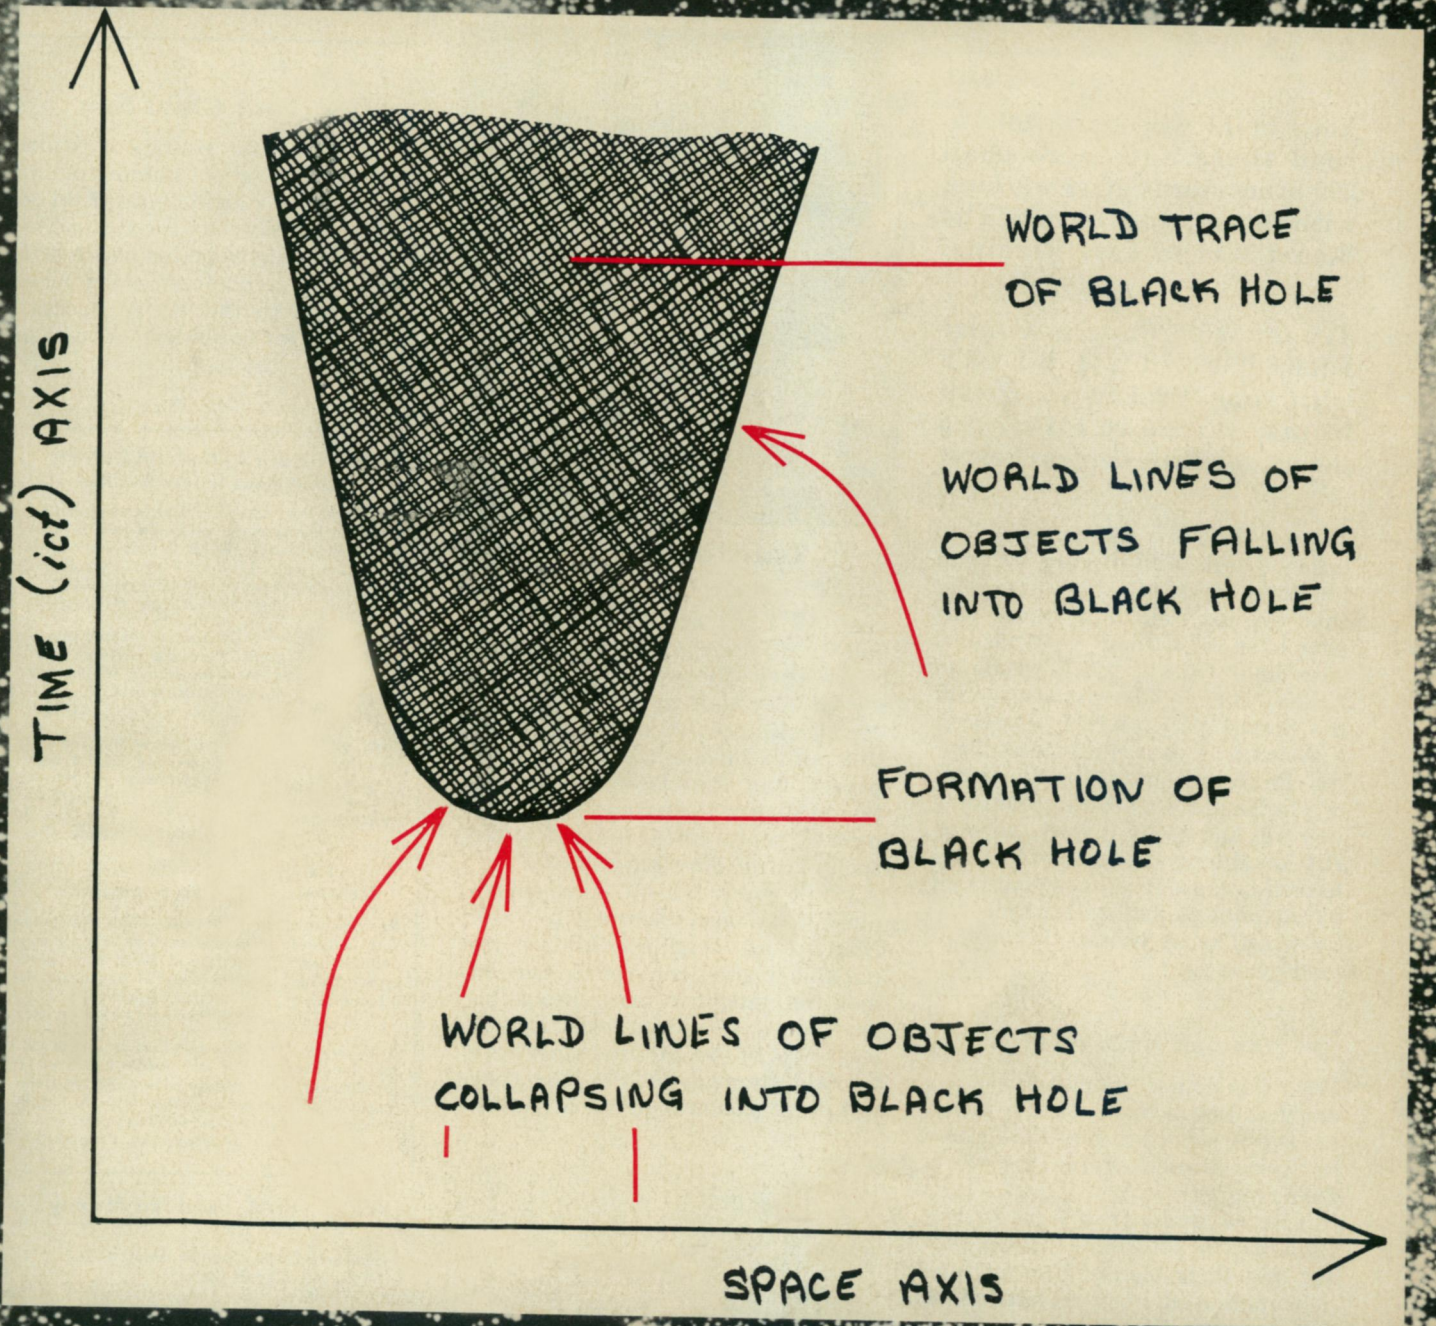 WORLD TRACE
OF BLACK HOLE
TIME (ict) AXIS
WORLD LINES OF
OBJECTS FALLING
INTO BLACK HOLE
FORMATION OF
BLACK HOLE
WORLD LINES OF OBJECTS
COLLAPSING INTO BLACK HOLE
SPACE AXIS